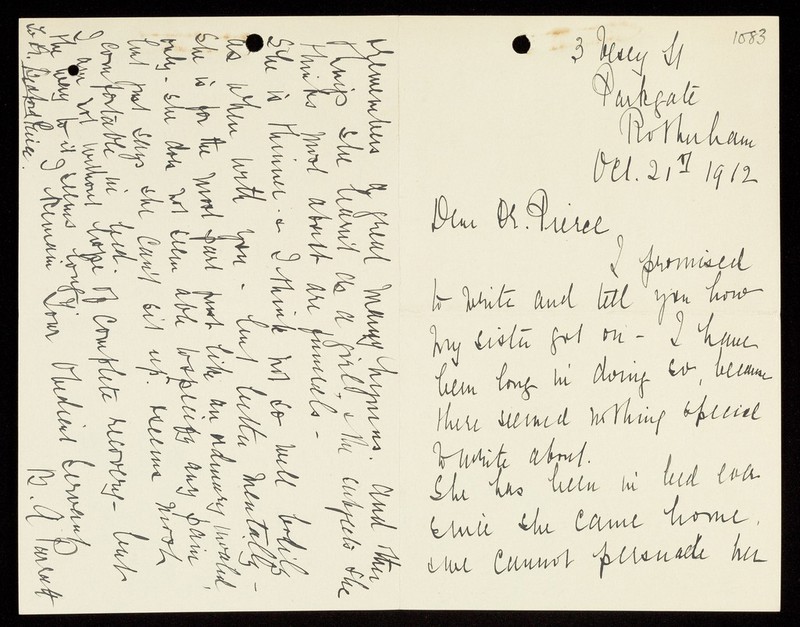 1083
3 Vesey St
Parkgate
Rotherham
Oct. 21st 1912
Dear Dr. Pierce
I promised
to write and tell you how
my sister got on - I have
been long in doing so, because
there seemed nothing special
to write about.
She has been in bed ever
since she came home.
we cannot persuade her
remembers a great many hymns. and other
things she learnt as a girl, & the subjects she
thinks most about are funerals -
She is thinner. & I think not so well bodily
as when with you - but better mentally -
She is for the most part just like an ordinary invalid
only - she does not seem able to specify any pain,
but just says she can't sit up. seems most
comfortable in bed.
I am not without hope of complete recovery - but
the way to it seems long
I remain Your Obedient Servant
B. A.
to Dr. Bedford Pierce.